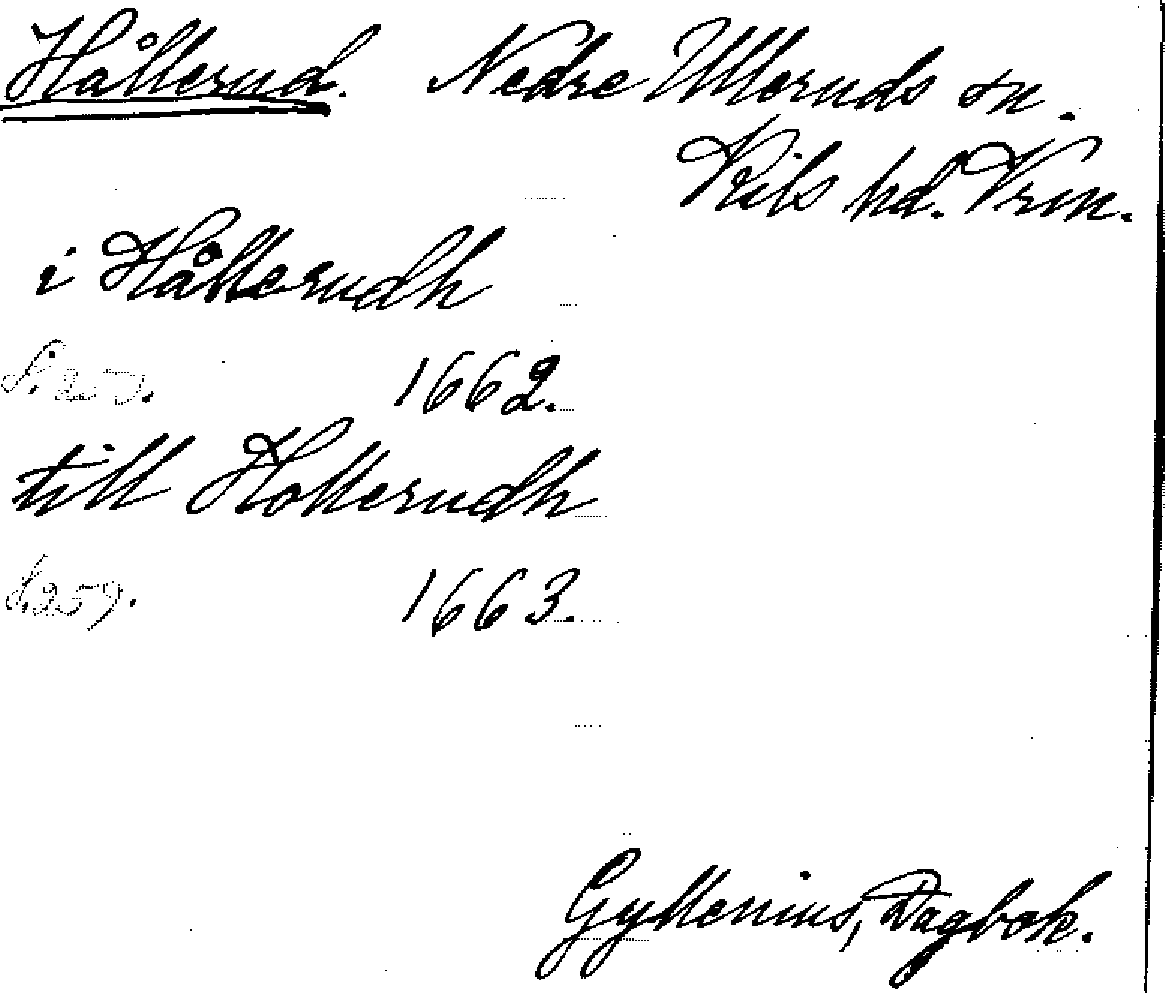 Hållerud. Nedre Ulleruds sn.
Kils hd. Vrm.
i Hållerudh
1662.
till Hollerudh
S. 259. 1663.
Gyllenius, Dagbok.